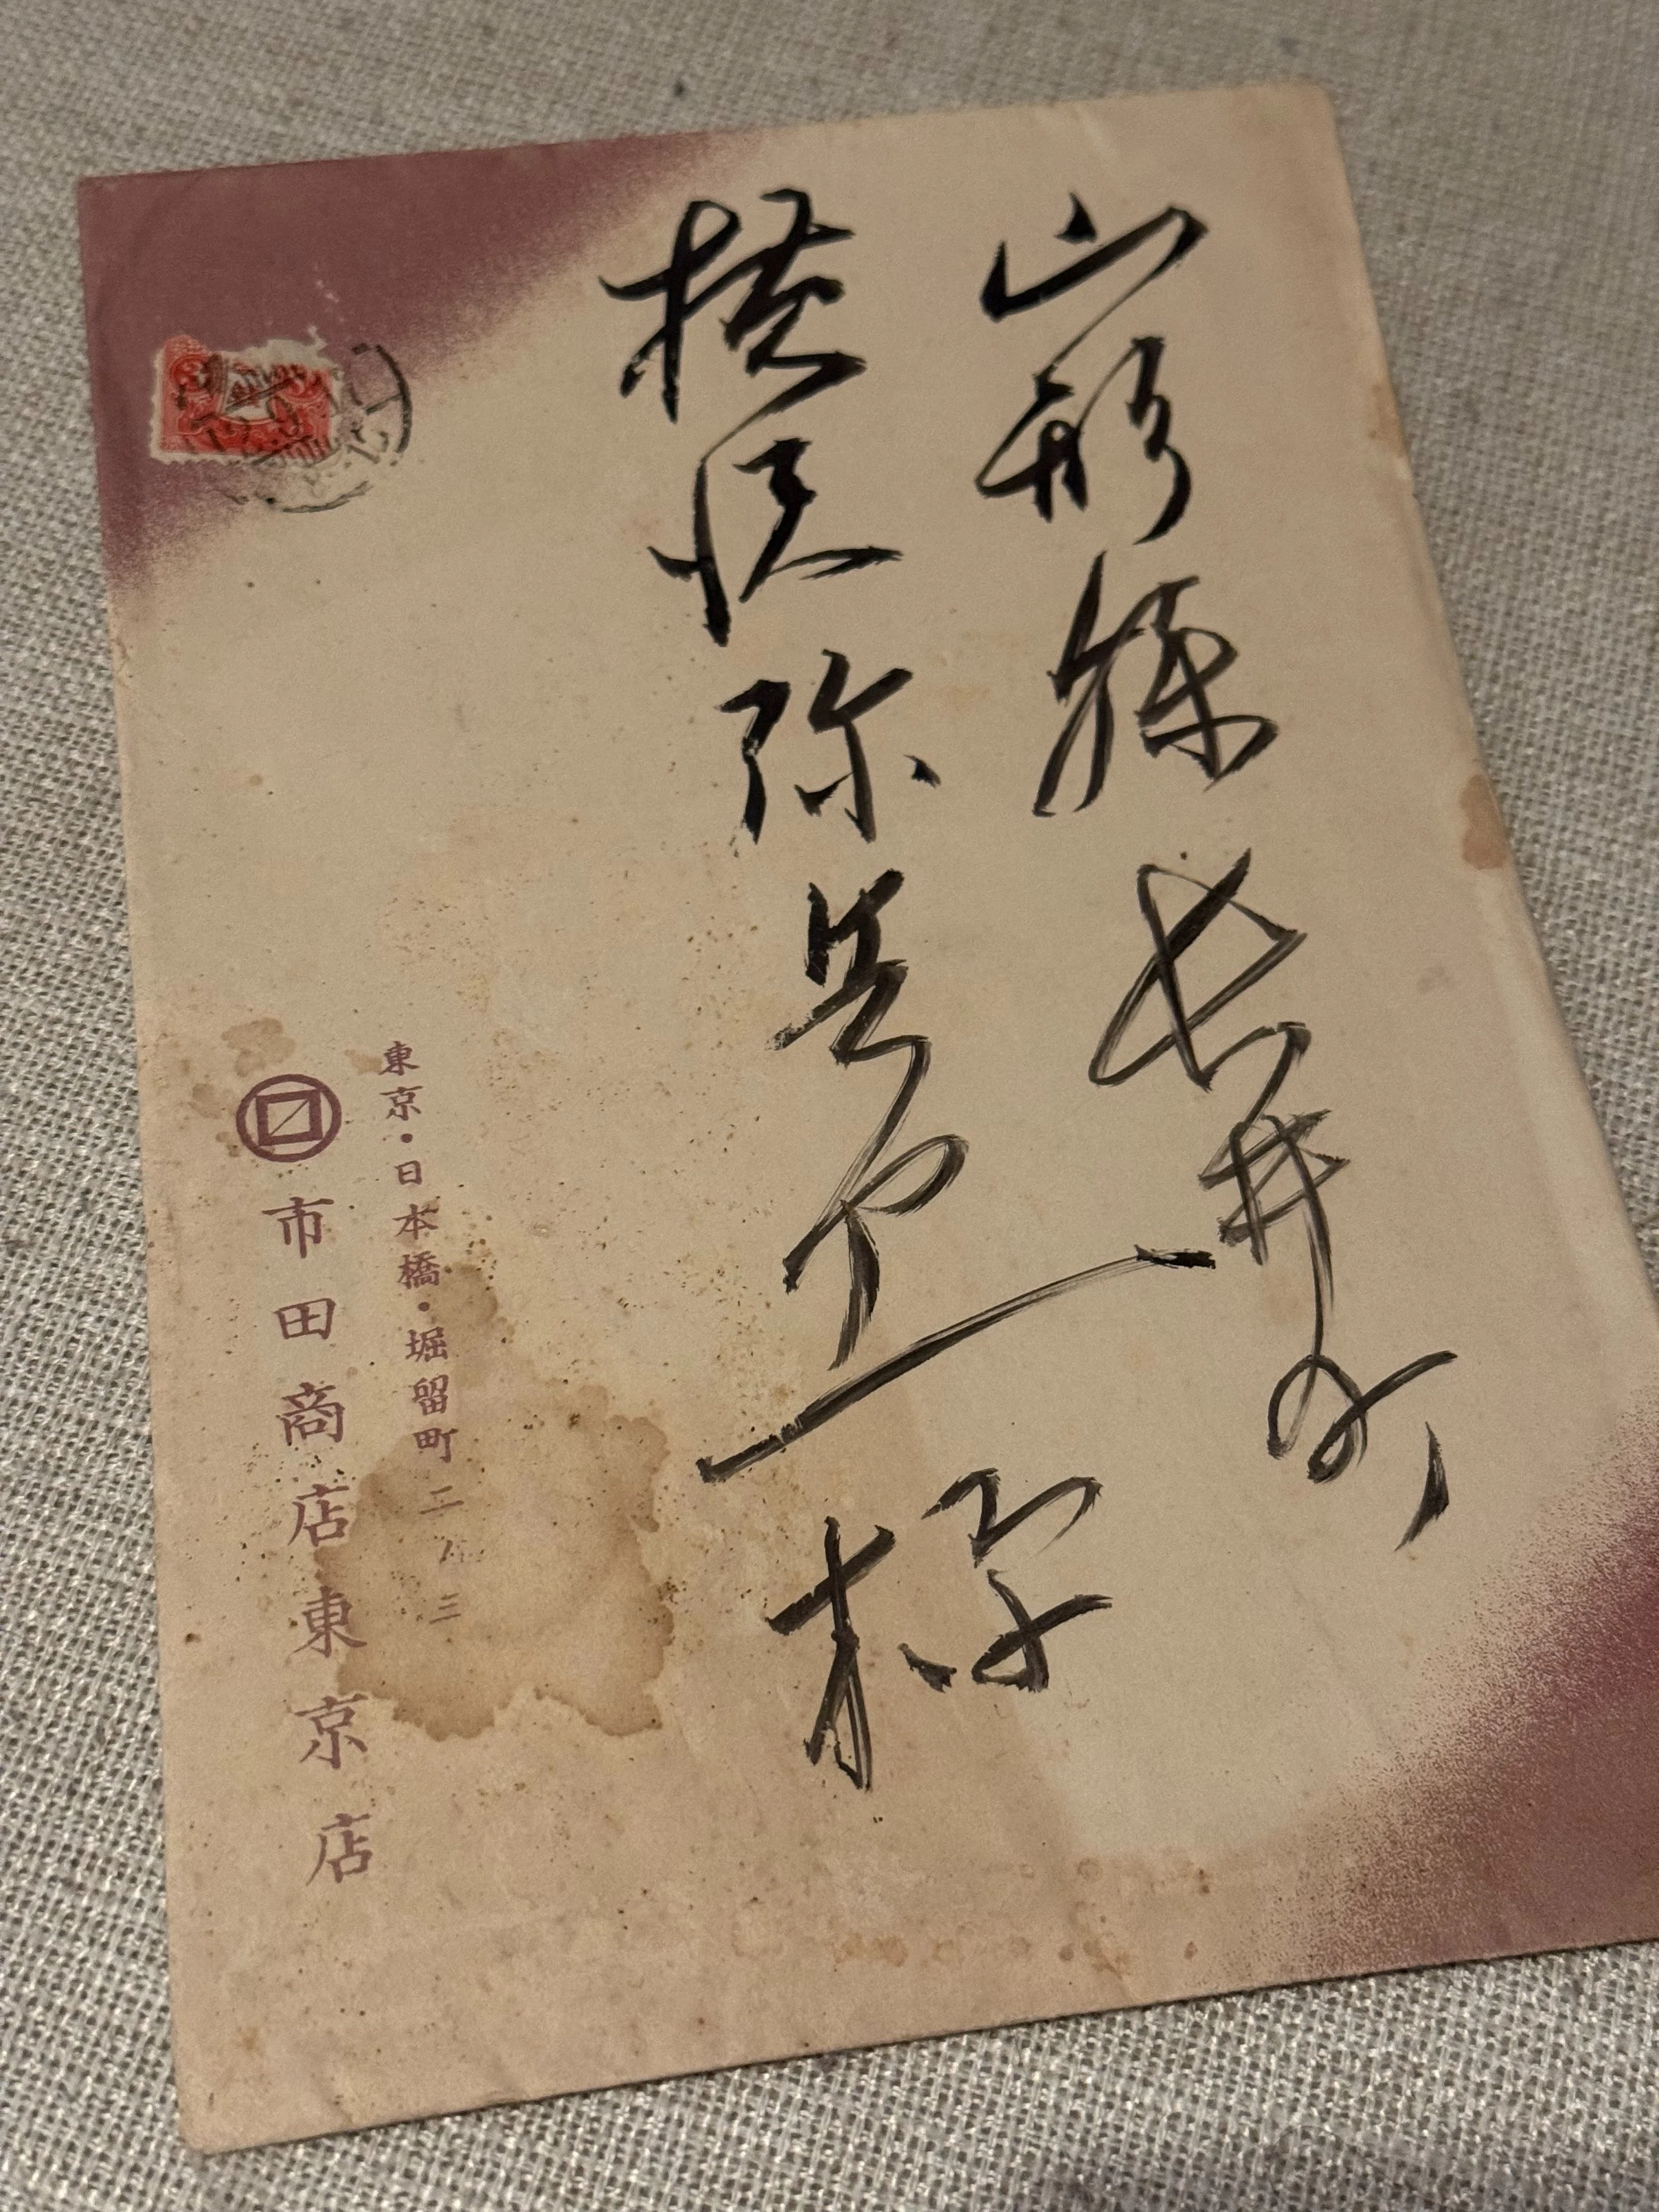 山形縣長井町
横沢弥兵衛様
東京・日本橋・堀留町二ノ三
市田商店東京店